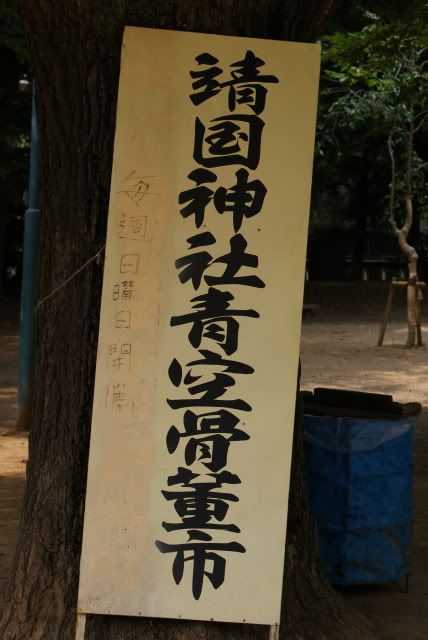 靖国神社青空骨董市
毎週日曜日開催